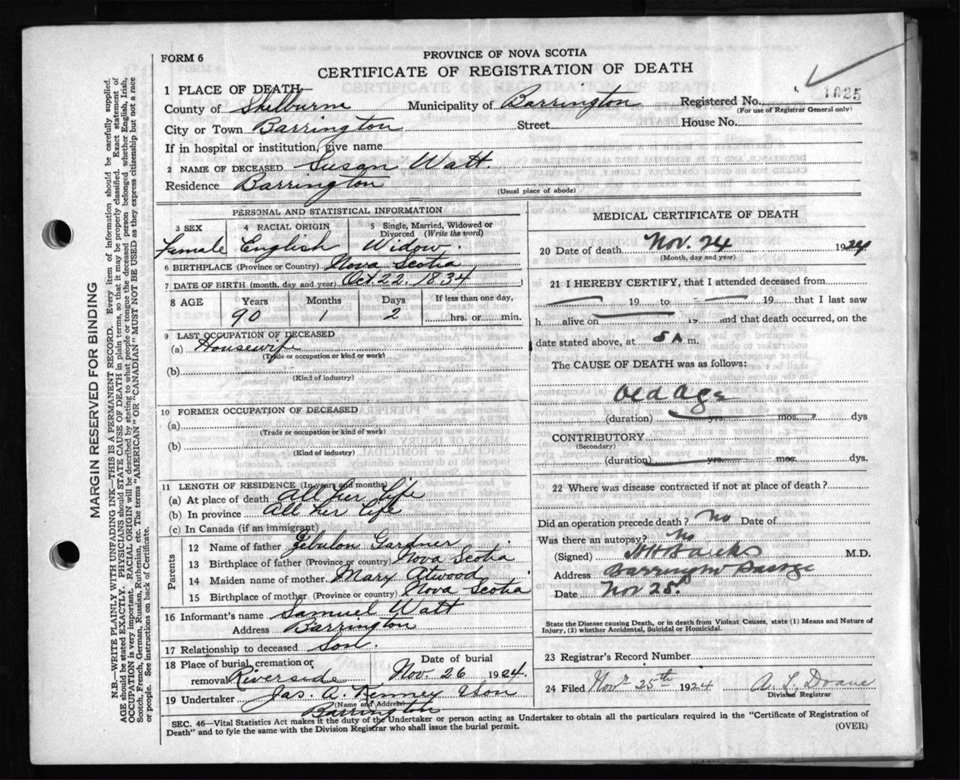 FORM 6
PROVINCE OF NOVA SCOTIA
CERTIFICATE OF REGISTRATION OF DEATH
1 PLACE OF DEATH—
County of Shelburn Municipality of Barrington Registered No. 1625
(For use of Registrar General only)
City or Town Barrington Street House No.
If in hospital or institution, give name
2 NAME OF DECEASED Susan Watt.
Residence Barrington
(Usual place of abode)
PERSONAL AND STATISTICAL INFORMATION
3 SEX 4 RACIAL ORIGIN 5 Single, Married, Widowed or Divorced (Write the word)
Female English Widow.
6 BIRTHPLACE (Province or Country) Nova Scotia
7 DATE OF BIRTH (month, day, and year) Oct 22. 1834
8 AGE Years Months Days If less than one day,
90 1 2 hrs. or min.
9 LAST OCCUPATION OF DECEASED
(a) Housewife
(Trade or occupation or kind or work)
(b)
(Kind of industry)
10 FORMER OCCUPATION OF DECEASED
(a)
(Trade or occupation or kind of work)
(b)
(Kind of industry)
11 LENGTH OF RESIDENCE (In years and months)
(a) At place of death All her life
(b) In province All her life
(c) In Canada (if an immigrant)
Parents
12 Name of father Zebulon Gardner
13 Birthplace of father (Province or country) Nova Scotia
14 Maiden name of mother Mary Atwood
15 Birthplace of mother (Province or country) Nova Scotia
16 Informant's name Samuel Watt
Address Barrington
17 Relationship to deceased Son.
18 Place of burial, cremation or removal Riverside Date of burial Nov. 26 1924
19 Undertaker Jas. A. Kenney & Son
(Name and Address)
Barrington
MEDICAL CERTIFICATE OF DEATH
20 Date of death Nov. 24 1924
(Month, day and year)
21 I HEREBY CERTIFY, that I attended deceased from
19 to 19 that I last saw
h alive on 19 and that death occurred, on
date stated above, at 5 A m.
The CAUSE OF DEATH was as follows:
Old Age
(duration) yrs. mos. dys
CONTRIBUTORY
(Secondary)
(duration) yrs. mos. dys.
22 Where was disease contracted if not at place of death?
Did an operation precede death? No Date of
Was there an autopsy? No
(Signed) H H Banks M.D.
Address Barrington Passage
Date Nov 25.
State the Disease causing Death, or in death from Violent Causes, state (1) Means and Nature of
Injury, (2) whether Accidental, Suicidal or Homicidal.
23 Registrar's Record Number
24 Filed Novr 25th 1924 A. L. Doane
Division Registrar
SEC. 46—Vital Statistics Act makes it the duty of the Undertaker or person acting as Undertaker to obtain all the particulars required in the "Certificate of Registration of
Death" and to fyle the same with the Division Registrar who shall issue the burial permit. (OVER)
MARGIN RESERVED FOR BINDING
N.B.—WRITE PLAINLY WITH UNFADING INK—THIS IS A PERMANENT RECORD. Every item of information should be carefully supplied.
AGE should be stated EXACTLY. PHYSICIANS should STATE CAUSE OF DEATH in plain terms, so that it may be properly classified. Exact statement of
OCCUPATION is very important. RACIAL ORIGIN will be described by stating to what people or tongue the deceased person belonged whether English, Irish,
Scotch, French, German, Russian, Ruthenian, etc. The terms "AMERICAN" or "CANADIAN" MUST NOT BE USED as they express citizenship but not a race
or people. See instructions on back of Certificate.